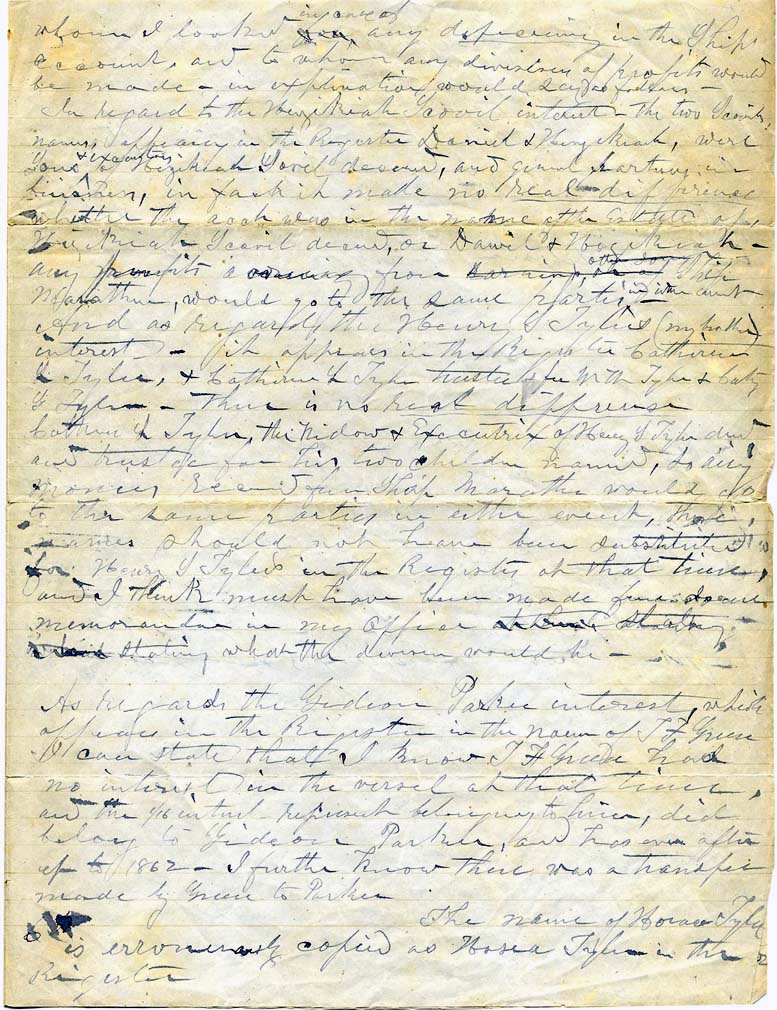 in case of
whom I looked for any deficiency in the Ship
account, and to whom any division of profits would
be made - in explination would say as follows -
In regard to the Hezekiah Scovil interest - the two Scovils
names appearing in the Register Daniel & Hezekiah, were
& executors
Sons of Hezekiah Scovil deceased, and general partners in
business, in fact it made no real difference
whether the acct was in the name of the Estate of
Hezekiah Scovil deceased, or Daniel & Hezekiah -
any profits accruing from Ship
Marathon, would go to the same parties in either event -
And as regards the Henry S Tyler (my brother)
interest - it appears in the Register Catherine
S Tyler, & Catherine S Tyler trustee for Wth Tyler & Caty
S Tyler - There is no real difference
Cathrine S Tyler, the Widow & Executrix of Henry S Tyler decd
and trustee for his two children named, so any
monies received from Ship Marathon would go
to the same parties in either event, their
names should not have been substituted
for Henry S Tylers in the Register at that time,
and I think must have been made from some
memorandum in my office
stating what the division would be -
As regards the Gideon Parker interest, which
appears in the Register in the name of T F Green
I can state that I know T F Green had
no interest in the vessel at that time,
and the 1/16 interest represent belonging to him, did
belong to Gideon Parker, and has ever after
up to 1862 - I further know there was a transfer
made by Green to Parker
The name of Horace Tyler
is erroneously copied as Hosea Tyler in the
Register